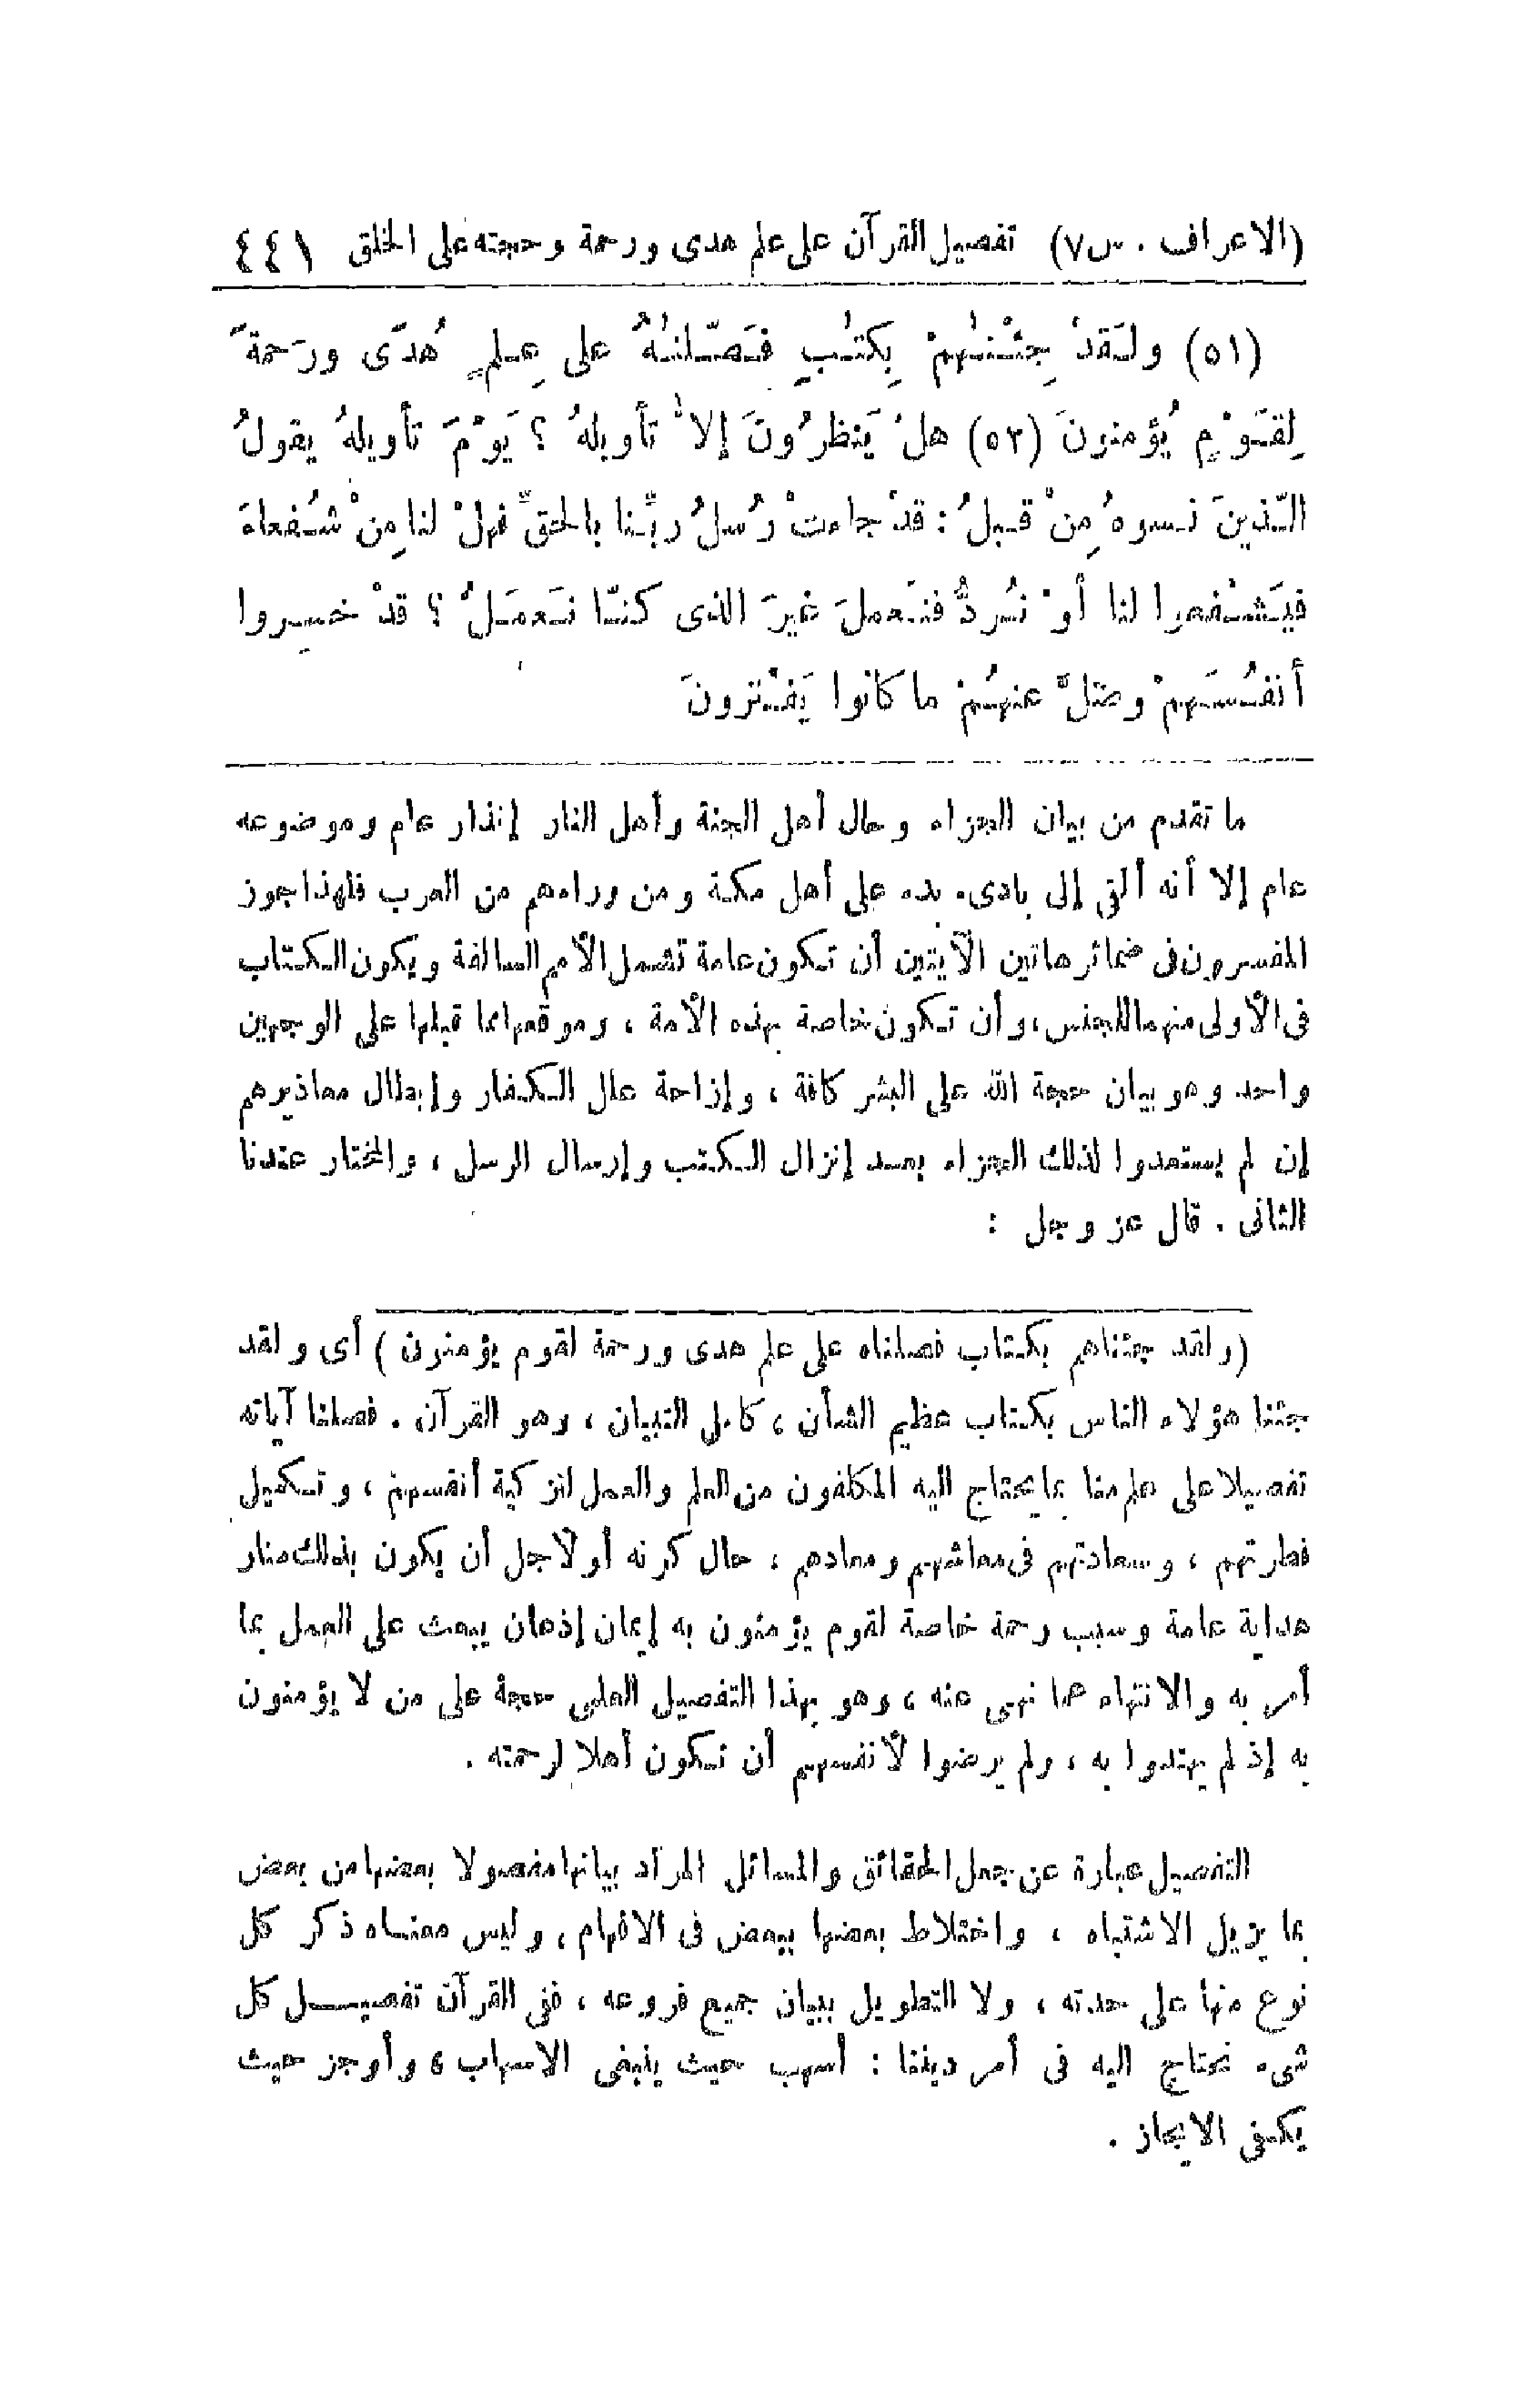 (الاعراف . س٧) تفصيل القرآن على علم هدى ورحمة وحجته على الخلق ٤٤١
(٥١) ولَقَدْ جِئْنٰهُمْ بِكِتٰبٍ فَصَّلنٰهُ على عِلمٍ هُدًى ورَحمةً
لِقَوْمٍ يُؤمنونَ (٥٢) هلْ يَنظرُونَ إلاَّ تأويلهُ ؟ يَوْمَ تأويلهُ يقولُ
الّذينَ نسوهُ مِنْ قبلُ : قدْ جاءتْ رُسلُ ربِّنا بالحقِّ فهلْ لنا مِنْ شُفعاءَ
فيَشْفعوا لنا أوْ نُردُّ فنَعملَ غيرَ الذى كنّا نَعمَلُ ؟ قدْ خسِروا
أنفُسَهمْ وضَلَّ عنهُمْ ما كانوا يَفْترونَ
ما تقدم من بيان الجزاء وحال أهل الجنة وأهل النار إنذار عام وموضوعه
عام إلا أنه ألقى إلى بادىء بدء على أهل مكة ومن وراءهم من العرب فلهذا جوز
المفسرون فى ضمائر هاتين الآيتين أن تكون عامة تشمل الأمم السالفة ويكون الكتاب
فى الأولى منهما للجنس ، وأن تكون خاصة بهذه الأمة ، وموقعهما مما قبلها على الوجهين
واحد وهو بيان حجة الله على البشر كافة ، وإزاحة علل الكفار وإبطال معاذيرهم
إن لم يستعدوا لذلك الجزاء بعد إنزال الكتب وإرسال الرسل ، والمختار عندنا
الثانى . قال عز وجل :
(ولقد جئناهم بكتاب فصلناه على علم هدى ورحمة لقوم يؤمنون ) أى ولقد
جئنا هؤلاء الناس بكتاب عظيم الشأن ، كامل التبيان ، وهو القرآن . فصلنا آياته
تفصيلا على علم منا بما يحتاج اليه المكلفون من العلم والعمل لتزكية أنفسهم ، وتكميل
فطرتهم ، وسعادتهم فى معاشهم ومعادهم ، حال كونه أو لأجل أن يكون بذلك منار
هداية عامة وسبب رحمة خاصة لقوم يؤمنون به إيمان إذعان يبعث على العمل بما
أمر به والانتهاء عما نهى عنه ، وهو بهذا التفصيل العلمى حجة على من لا يؤمنون
به إذ لم يهتدوا به ، ولم يرضوا لأنفسهم أن تكون أهلا لرحمته .
التفصيل عبارة عن جعل الحقائق والمسائل المراد بيانها مفصولا بعضها من بعض
بما يزيل الاشتباه ، واختلاط بعضها ببعض فى الافهام ، وليس معناه ذكر كل
نوع منها على حدته ، ولا التطويل ببيان جميع فروعه ، ففى القرآن تفصيل كل
شىء نحتاج اليه فى أمر ديننا : أسهب حيث ينبغى الاسهاب ، وأوجز حيث
يكفى الايجاز .